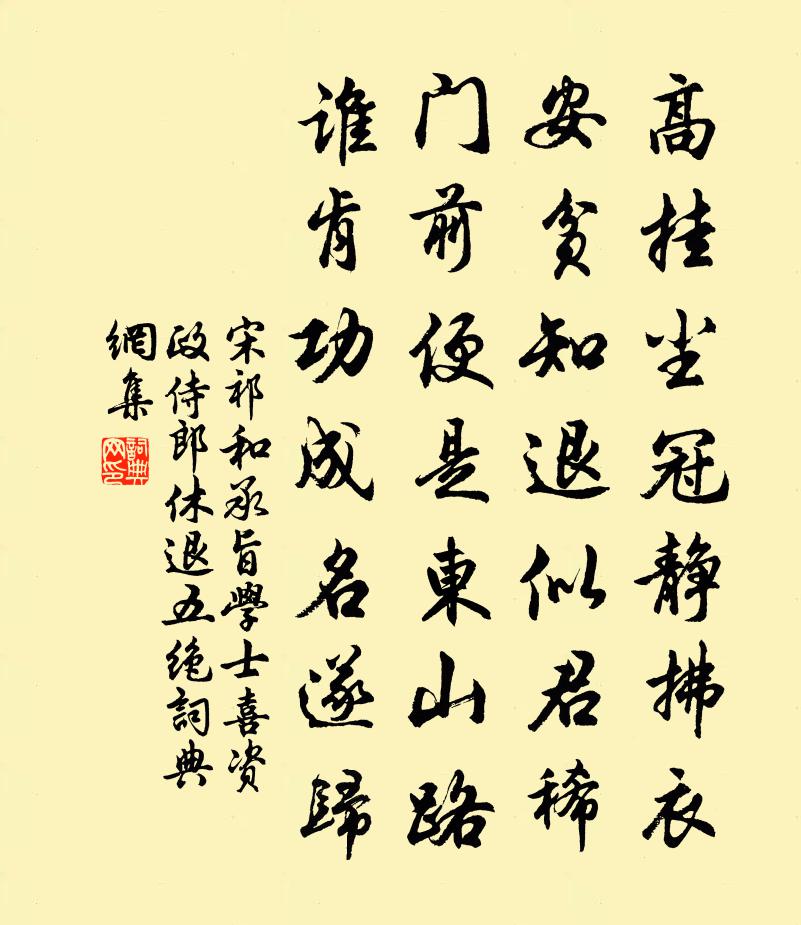 高挂尘冠静拂衣
安贫知退似君稀
门前便是東山路
谁肯功成名遂歸
宋祁和承旨學士喜资
政侍郎休退五绝詞典
網集
詞典
网印